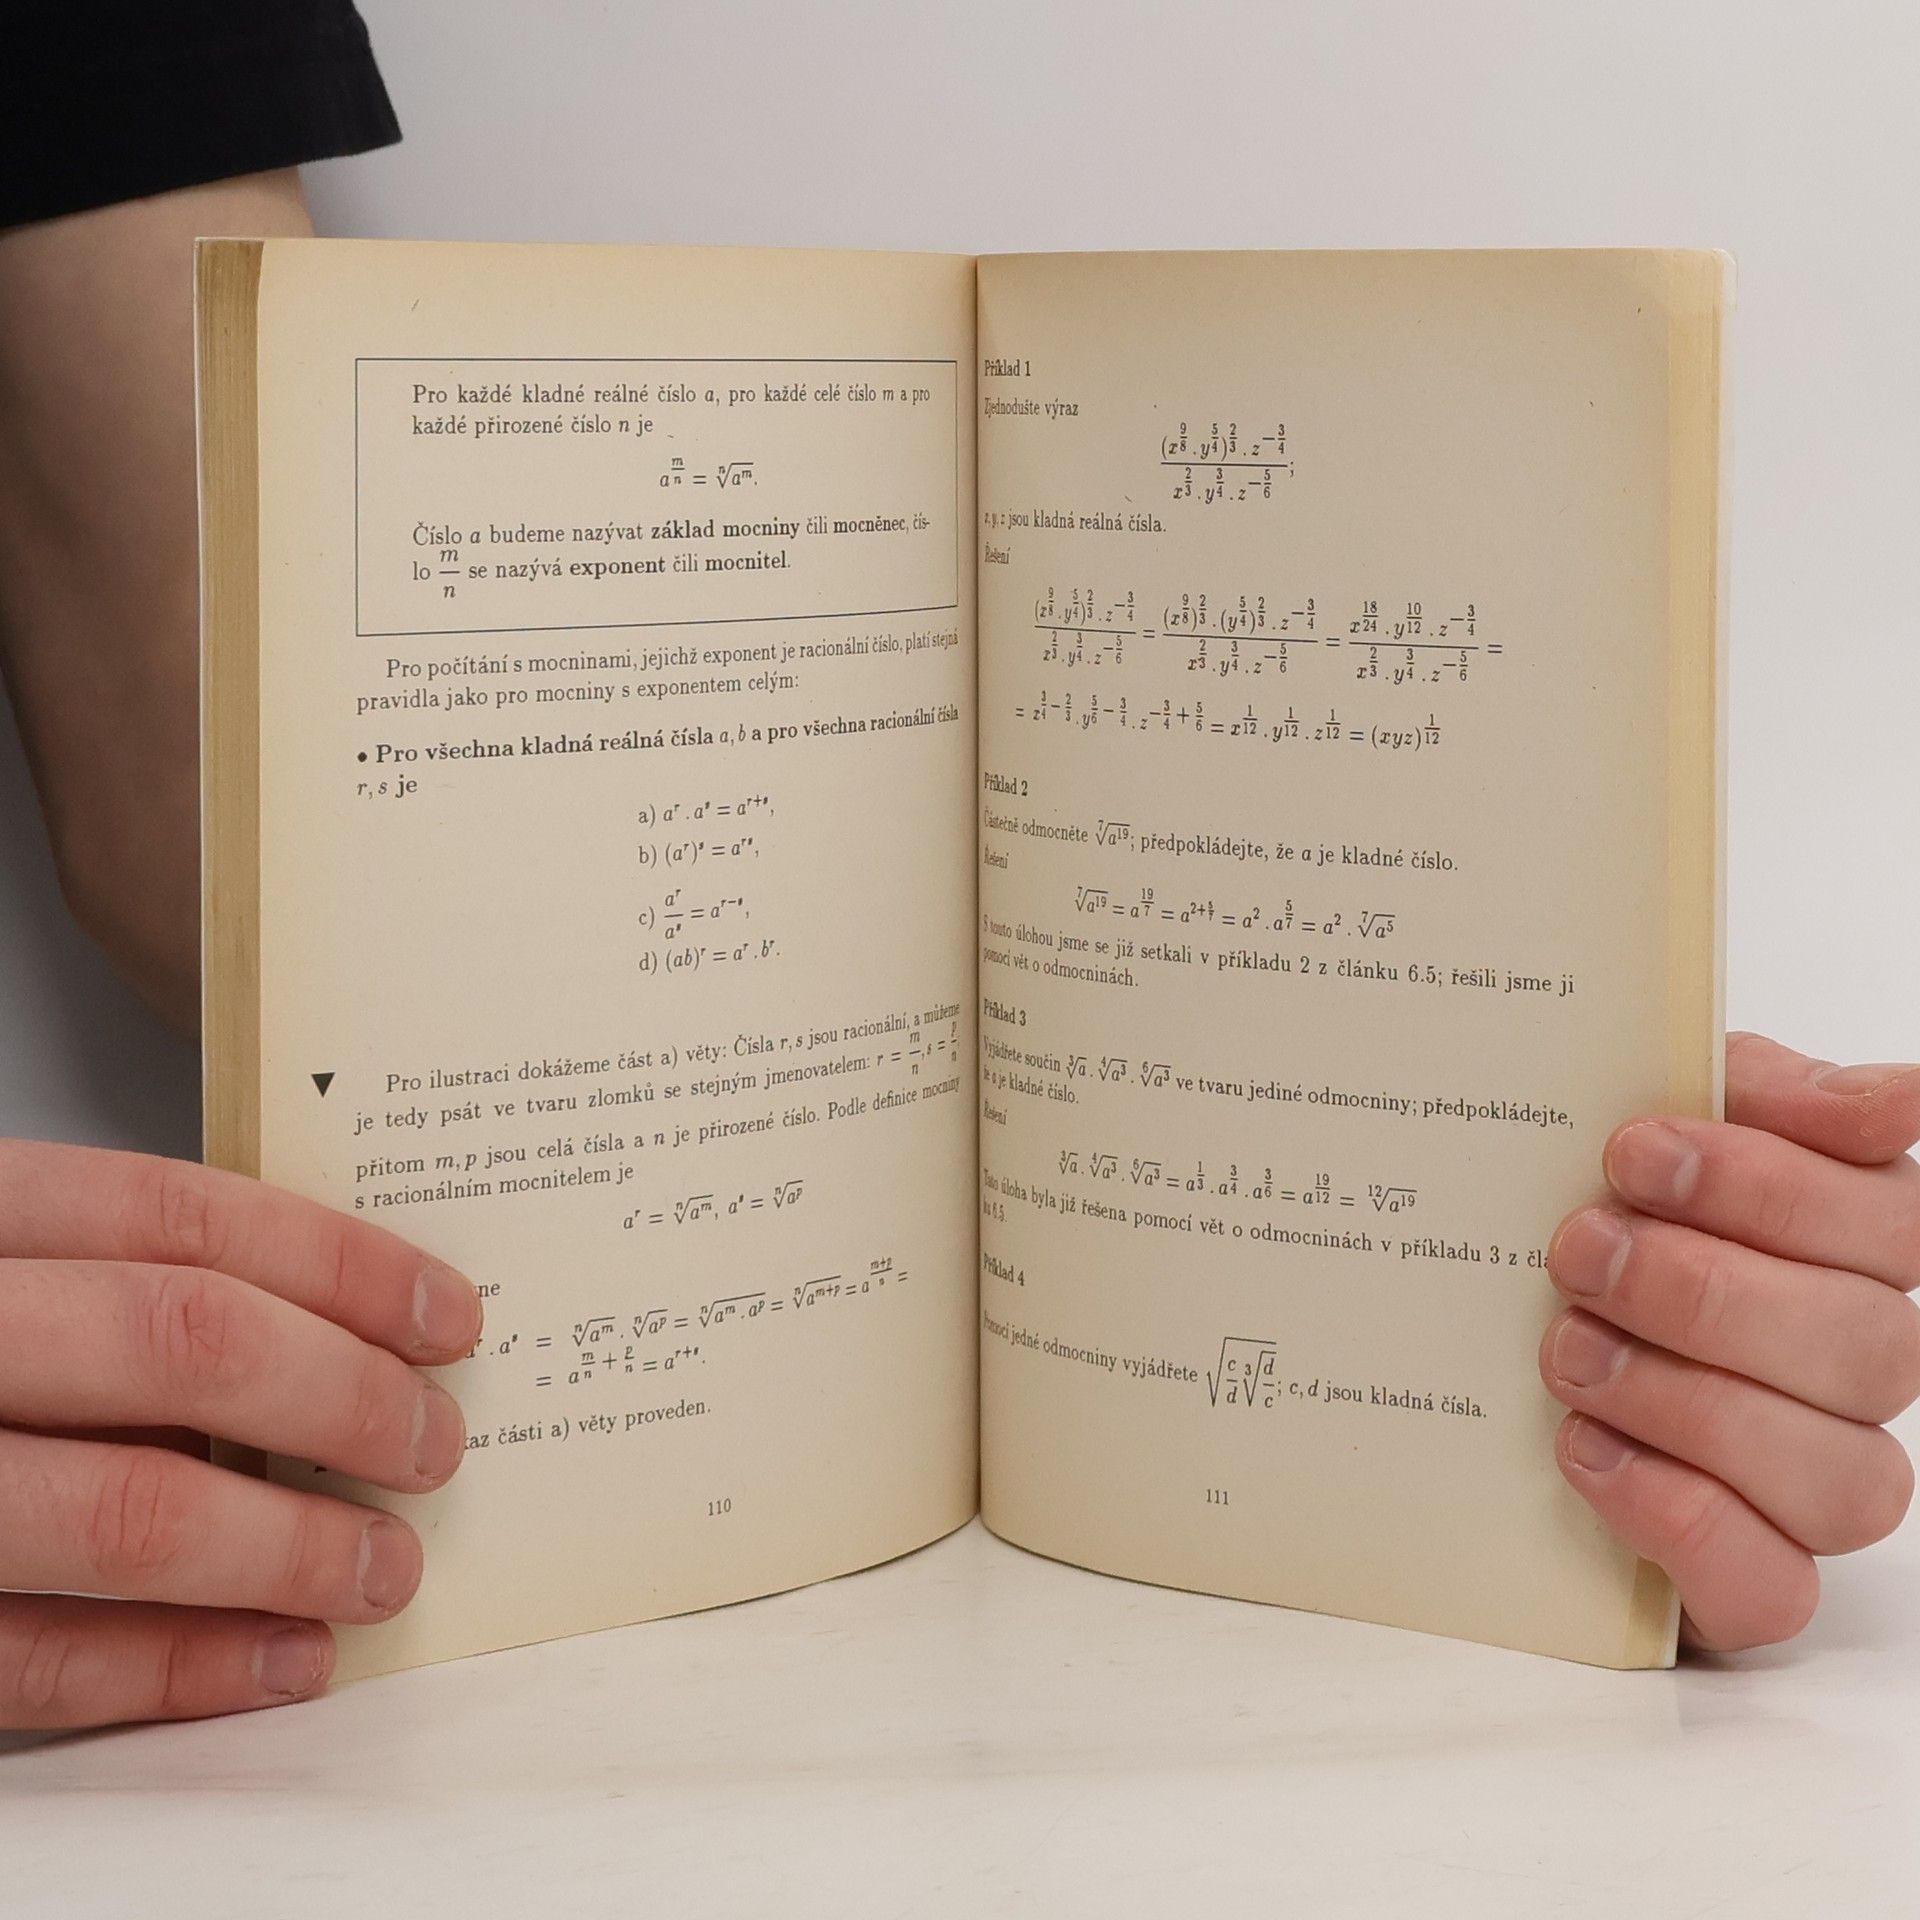 Pro každé kladné reálné číslo a, pro každé celé číslo m a pro
každé přirozené číslo n je
a^{\frac{m}{n}} = \sqrt[n]{a^m}.
Číslo a budeme nazývat základ mocniny čili mocněnec, čís-
lo \frac{m}{n} se nazývá exponent čili mocnitel.
Pro počítání s mocninami, jejichž exponent je racionální číslo, platí stejná
pravidla jako pro mocniny s exponentem celým:
• Pro všechna kladná reálná čísla a, b a pro všechna racionální čísla
r, s je
a) a^r . a^s = a^{r+s},
b) (a^r)^s = a^{rs},
c) \frac{a^r}{a^s} = a^{r-s},
d) (ab)^r = a^r . b^r.
▼ Pro ilustraci dokážeme část a) věty: Čísla r, s jsou racionální, a můžeme
je tedy psát ve tvaru zlomků se stejným jmenovatelem: r = \frac{m}{n}, s = \frac{p}{n},
přitom m, p jsou celá čísla a n je přirozené číslo. Podle definice mocniny
s racionálním mocnitelem je
a^r = \sqrt[n]{a^m}, a^s = \sqrt[n]{a^p}
. a^s = \sqrt[n]{a^m} . \sqrt[n]{a^p} = \sqrt[n]{a^m . a^p} = \sqrt[n]{a^{m+p}} = a^{\frac{m+p}{n}} =
= a^{\frac{m}{n}+\frac{p}{n}} = a^{r+s}.
části a) věty proveden.
110
Příklad 1
Zjednodušte výraz
\frac{(x^{\frac{9}{8}} . y^{\frac{5}{4}})^{\frac{2}{3}} . z^{-\frac{3}{4}}}{x^{\frac{2}{3}} . y^{\frac{3}{4}} . z^{-\frac{5}{6}}};
x, y, z jsou kladná reálná čísla.
Řešení
\frac{(x^{\frac{9}{8}} . y^{\frac{5}{4}})^{\frac{2}{3}} . z^{-\frac{3}{4}}}{x^{\frac{2}{3}} . y^{\frac{3}{4}} . z^{-\frac{5}{6}}} = \frac{(x^{\frac{9}{8}})^{\frac{2}{3}} . (y^{\frac{5}{4}})^{\frac{2}{3}} . z^{-\frac{3}{4}}}{x^{\frac{2}{3}} . y^{\frac{3}{4}} . z^{-\frac{5}{6}}} = \frac{x^{\frac{18}{24}} . y^{\frac{10}{12}} . z^{-\frac{3}{4}}}{x^{\frac{2}{3}} . y^{\frac{3}{4}} . z^{-\frac{5}{6}}} =
= x^{\frac{3}{4}-\frac{2}{3}} . y^{\frac{5}{6}-\frac{3}{4}} . z^{-\frac{3}{4}+\frac{5}{6}} = x^{\frac{1}{12}} . y^{\frac{1}{12}} . z^{\frac{1}{12}} = (xyz)^{\frac{1}{12}}
Příklad 2
Částečně odmocněte \sqrt[7]{a^{19}}; předpokládejte, že a je kladné číslo.
Řešení
\sqrt[7]{a^{19}} = a^{\frac{19}{7}} = a^{2+\frac{5}{7}} = a^2 . a^{\frac{5}{7}} = a^2 . \sqrt[7]{a^5}
S touto úlohou jsme se již setkali v příkladu 2 z článku 6.5; řešili jsme ji
pomocí vět o odmocninách.
Příklad 3
Vyjádřete součin \sqrt[3]{a} . \sqrt[4]{a^3} . \sqrt[6]{a^3} ve tvaru jediné odmocniny; předpokládejte,
že a je kladné číslo.
Řešení
\sqrt[3]{a} . \sqrt[4]{a^3} . \sqrt[6]{a^3} = a^{\frac{1}{3}} . a^{\frac{3}{4}} . a^{\frac{3}{6}} = a^{\frac{19}{12}} = \sqrt[12]{a^{19}}
Tato úloha byla již řešena pomocí vět o odmocninách v příkladu 3 z
ku 6.5.
Příklad 4
Pomocí jedné odmocniny vyjádřete \sqrt{\frac{c}{d}\sqrt[3]{\frac{d}{c}}}; c, d jsou kladná čísla.
111